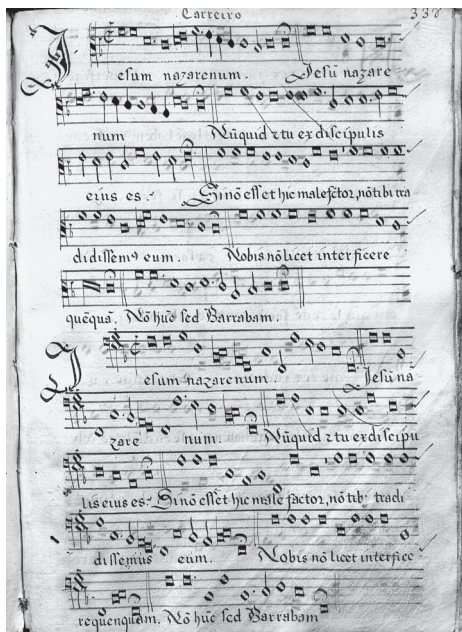 Carreiro 338
Jesum nazarenum. Jesū nazare
num Nūquid ⁊ tu ex discipulis
eius es. Sinō esset hic malefctor, nōtibi tra
didissemꝰ eum. Nobis nō licet interficere
quēquā. Nō hūc sed Barrabam.
Jesum nazarenum. Jesū na
zare num Nūquid ⁊ tu ex discipu
lis eius es. Sinō esset hic male factor, nō tib tradi
dissemus eum. Nobis nō licet interfice
re quenquam. Nō hūc sed Barrabam